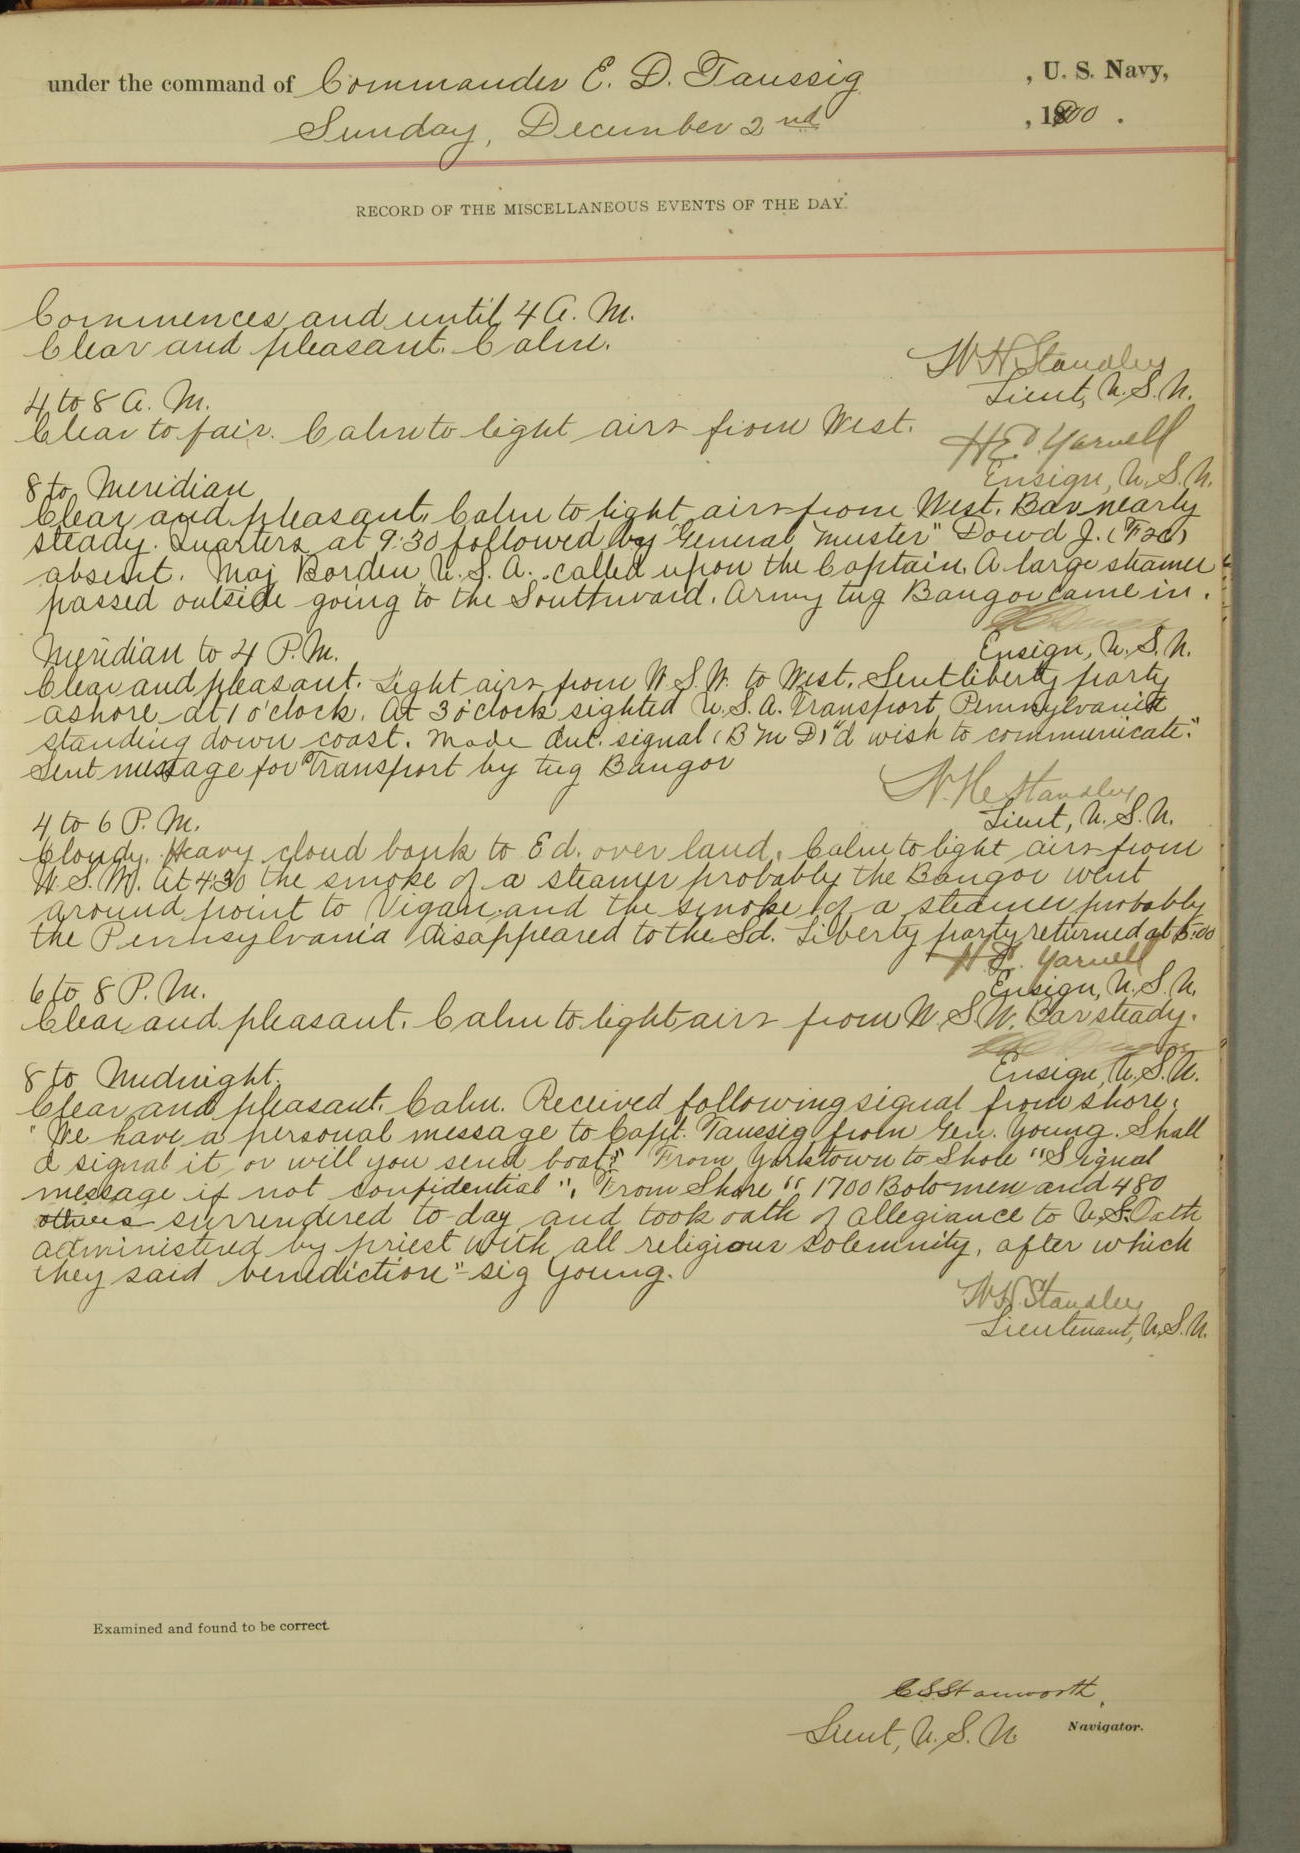 under the command of Commander E. D. Taussig, U. S. Navy,
Sunday, December 2nd, 1900.
RECORD OF THE MISCELLANEOUS EVENTS OF THE DAY.
Commences and until 4 A. M.
Clear and pleasant. Calm.
W H Standley
Lieut, U.S.N.
4 to 8 A. M.
Clear to fair. Calm to light airs from West.
H E Yarnell
Ensign, U.S.N.
8 to Meridian
Clear and pleasant. Calm to light airs from West. Bar nearly
steady. Quarters at 9:30 followed by "General Muster" Dowd J. (F2c)
absent. Maj Borden U.S.A. called upon the Captain. A large steamer
passed outside going to the Southward. Army tug Bangor came in.
Ensign, U.S.N.
Meridian to 4 P.M.
Clear and pleasant. Light airs from W.S.W. to West. Sent liberty party
ashore at 1 o'clock. At 3 o'clock sighted U.S.A. Transport Pennsylvania
standing down coast. Made Int. signal (B M D) "I wish to communicate."
Sent message for Transport by tug Bangor
W. H. Standley
Lieut, U.S.N.
4 to 6 P.M.
Cloudy. Heavy cloud bank to Ed. over land. Calm to light airs from
W.S.W. At 4:30 the smoke of a steamer probably the Bangor went
around point to Vigan and the smoke of a steamer probably
the Pennsylvania disappeared to the Sd. Liberty party returned at
H. E. Yarnell
Ensign, U.S.N.
6 to 8 P.M.
Clear and pleasant. Calm to light airs from W.S.W. Bar steady.
Ensign, U.S.N.
8 to Midnight.
Clear and pleasant. Calm. Received following signal from shore.
"We have a personal message to Capt. Taussig from Gen. Young. Shall
I signal it, or will you send boat?" From Yorktown to Shore "Signal
message if not confidential". From Shore "1700 Bolomen and 480
others surrendered to-day and took oath of allegiance to U.S. Oath
administered by priest with all religious solemnity, after which
they said benediction" - sig Young.
W H Standley
Lieutenant, U.S.N.
Examined and found to be correct.
C S Stanworth,
Lieut, U.S.N. Navigator.